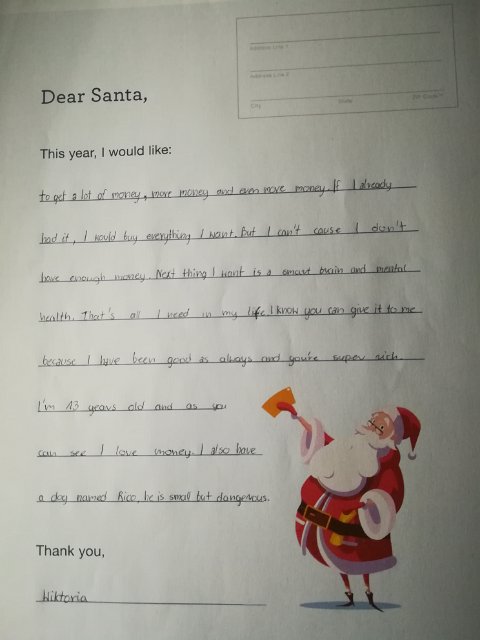 Address Line 1
Address Line 2
City State ZIP Code
Dear Santa,
This year, I would like:
to get a lot of money, more money and even more money. If I already
had it, I would buy everything I want. But I can't cause I don't
have enough money. Next thing I want is a smart brain and mental
health. That's all I need in my life. I know you can give it to me
because I have been good as always and you're super rich.
I'm 13 years old and as you
can see I love money. I also have
a dog named Rico, he is small but dangerous.
Thank you,
Wiktoria